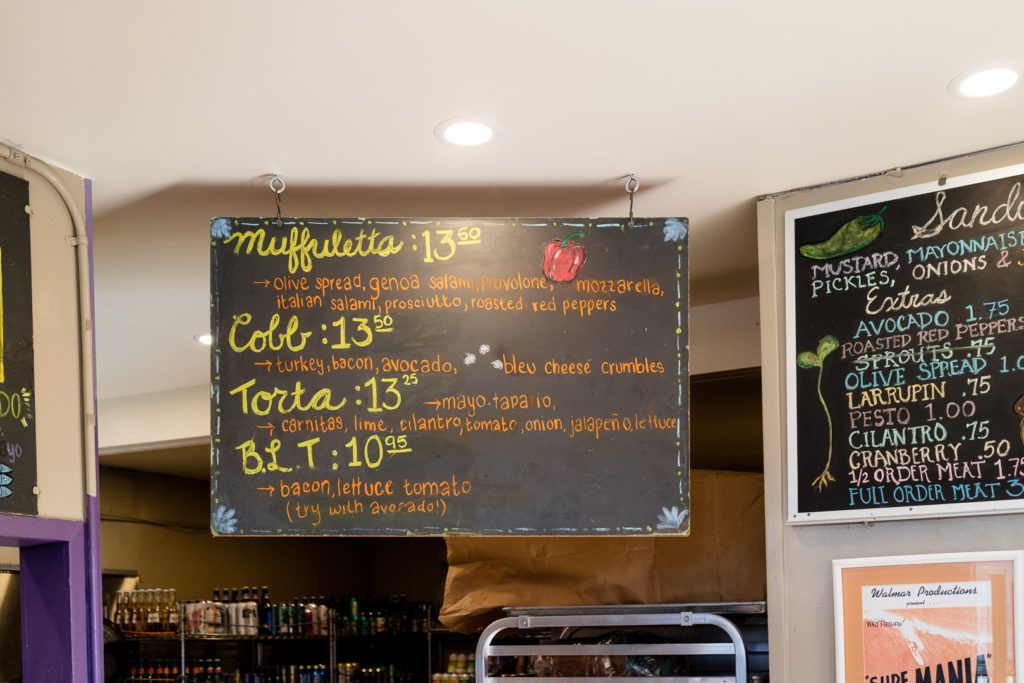 Muffuletta : 13 50
→ olive spread, genoa salami, provolone, mozzarella,
italian salami, prosciutto, roasted red peppers
Cobb : 13 50
→ turkey, bacon, avocado, bleu cheese crumbles
Torta : 13 25 → mayo. tapatio,
→ carnitas, lime, cilantro, tomato, onion, jalapeño, lettuce
B.L.T : 10 95
→ bacon, lettuce tomato
(try with avocado!)
MUSTARD, MAYONNAISE
PICKLES, ONIONS &
Extras
AVOCADO 1.75
ROASTED RED PEPPERS
SPROUTS .75
OLIVE SPREAD
LARRUPIN .75
PESTO 1.00
CILANTRO .75
CRANBERRY .50
1/2 ORDER MEAT 1.75
FULL ORDER MEAT
Walmar Productions
present...
"SURF MANIA"